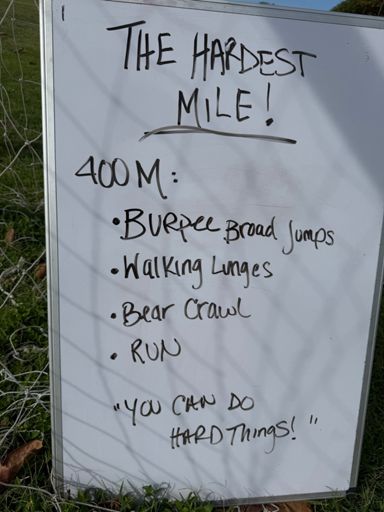 THE HARDEST
MILE!
400M:
• BURPEE BROAD JUMPS
• Walking Lunges
• Bear Crawl
• RUN
"YOU CAN DO
HARD Things!"